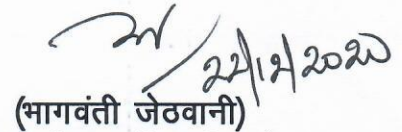 22/12/2020
(भागवंती जेठवानी)